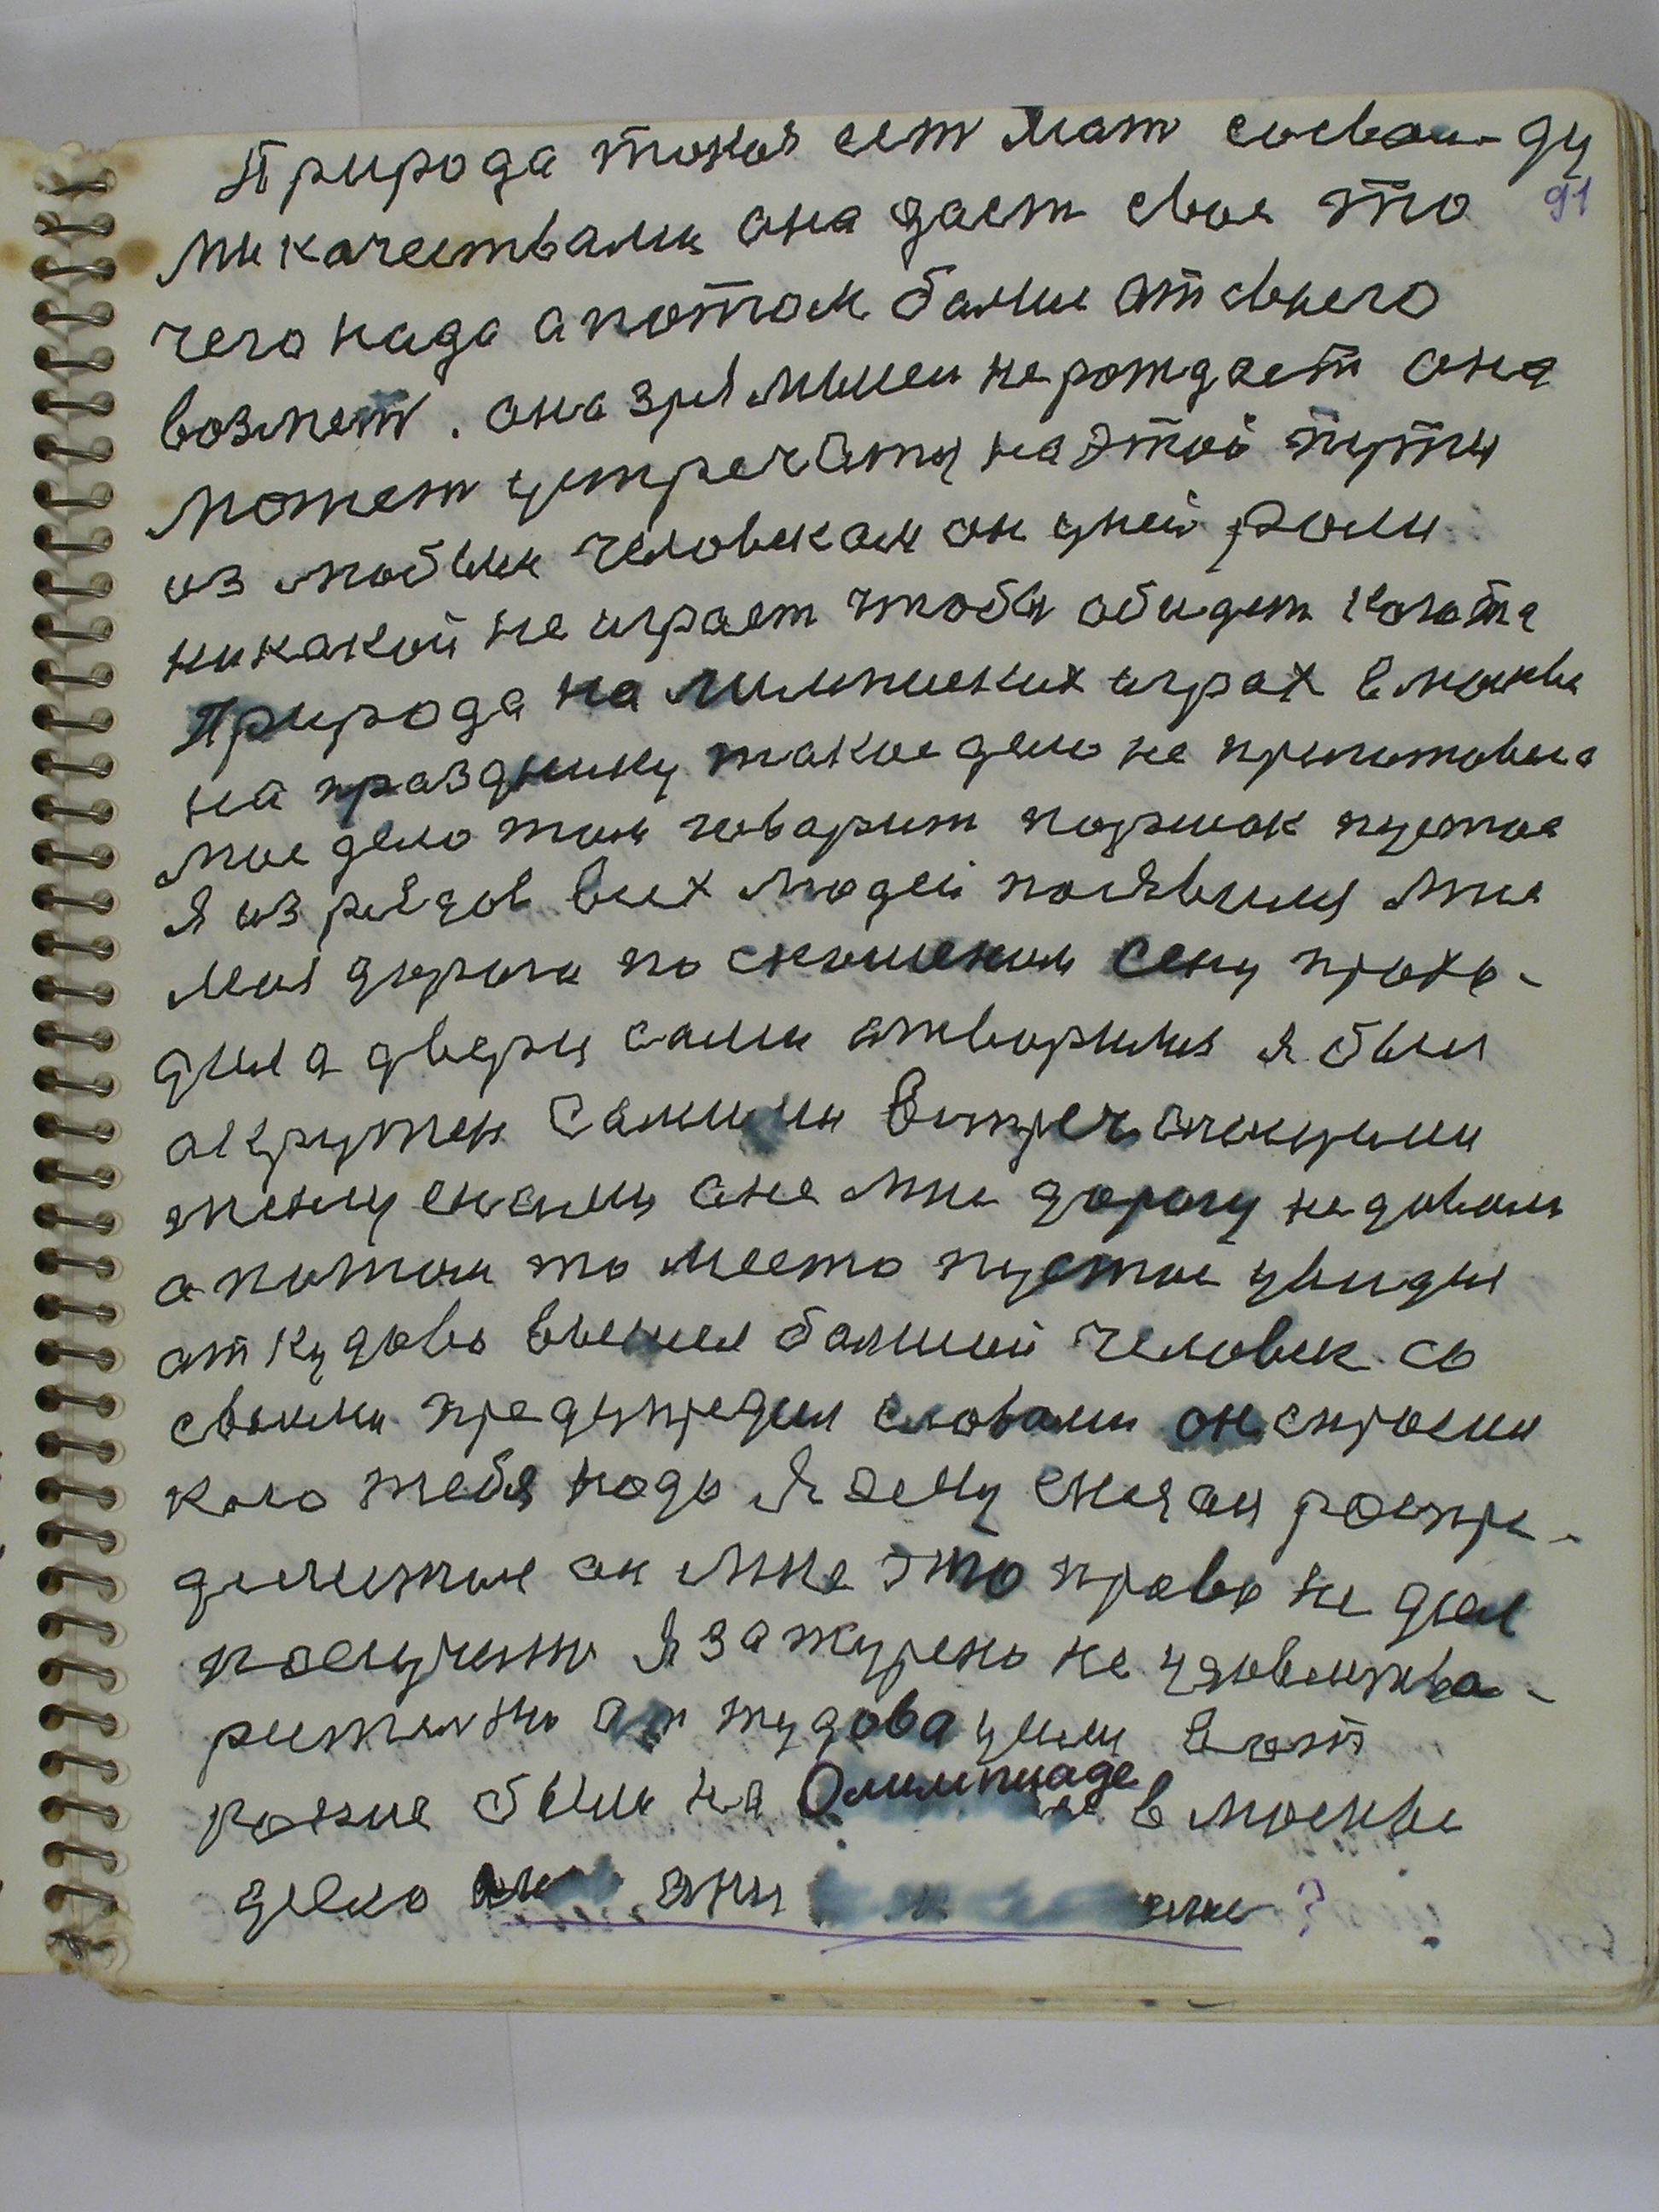 Природа такая ест Мат сосваи- ду
ми качествами она дает свое то 91
чего нада а потом балше от снего
возмет. она зря мысеи не рождает она
может устречатц на этой пути
из любым человекам он уней роли
никакой не играет чтобы обидет кого та
Природа на лимписких играх в москве
на празднику такое дело не приготовила
мое дело там говарит поршок пустое
Я из рядов всех людей появился мне
моя дорога по скошеном сену прохо-
дила двери сами атворился я был
акружен самими встречающими
они мне дорогу не давали
а потом то место пустое увидил
от кудово вышел балшой человек со
своими предупредил словами он спросил
кого тебя надо Я ему сказал распре-
делител он мне это право не дал
получит Я зажурено не удовлитва-
рително от тудова ушли Вот
какие были на Олимпиаде в москве
дело они